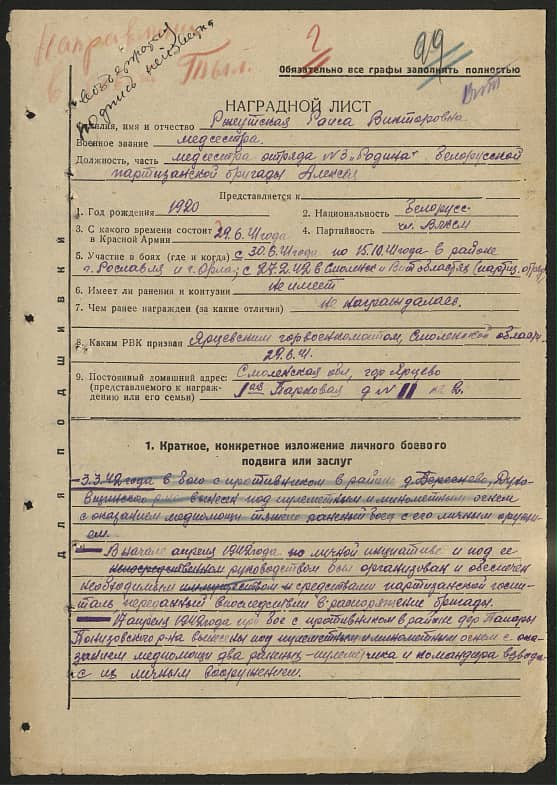 Направлен
в Тыл.
подпись неизвестна
2
99
Обязательно все графы заполнять полностью
НАГРАДНОЙ ЛИСТ
Фамилия, имя и отчество Ржеутская Раиса Викторовна
Военное звание медсестра.
Должность, часть медсестра отряда №3 „Родина" Белорусской
партизанской бригады Алексея
Представляется к
1. Год рождения 1920 2. Национальность Белорусс-
3. С какого времени состоит в Красной Армии 29.6.41 года 4. Партийность чл. ВЛКСМ
5. Участие в боях (где и когда) с 30.6.41 по 15.10.41 года в районе
г. Рославля и г. Орла; с 27.2.42 в Смоленск и Вит областях (партиз. отряд)
6. Имеет ли ранения и контузии не имеет
7. Чем ранее награжден (за какие отличия) не награждалась.
8. Каким РВК призван Ярцевским горвоенкоматом, Смоленской области
29.6.41.
9. Постоянный домашний адрес: Смоленская обл, гор Ярцево
(представляемого к награж-
дению или его семьи) 1ая Парковая д № 11 кв 2.
для подшивки
1. Краткое, конкретное изложение личного боевого
подвига или заслуг
3.3.42 года в бою с противником в районе д. Береснево, Духо-
вщинского р-на вынесен под пулеметным и минометным огнем
с оказанием медпомощи тяжело раненый боец с его личным оружи-
ем.
В начале апреля 1942 года по личной инициативе и под ее
непосредственным руководством был организован и обеспечен
необходимым имуществом и средствами партизанский госпи-
таль переданный впоследствии в распоряжение бригады.
17 апреля 1942 года при бое с противником в районе дер
Понизовского р-на вынесены под пулеметным и минометным огнем с ока-
занием медпомощи два раненых-пулеметчика и командира взвода-
с их личным вооружением.